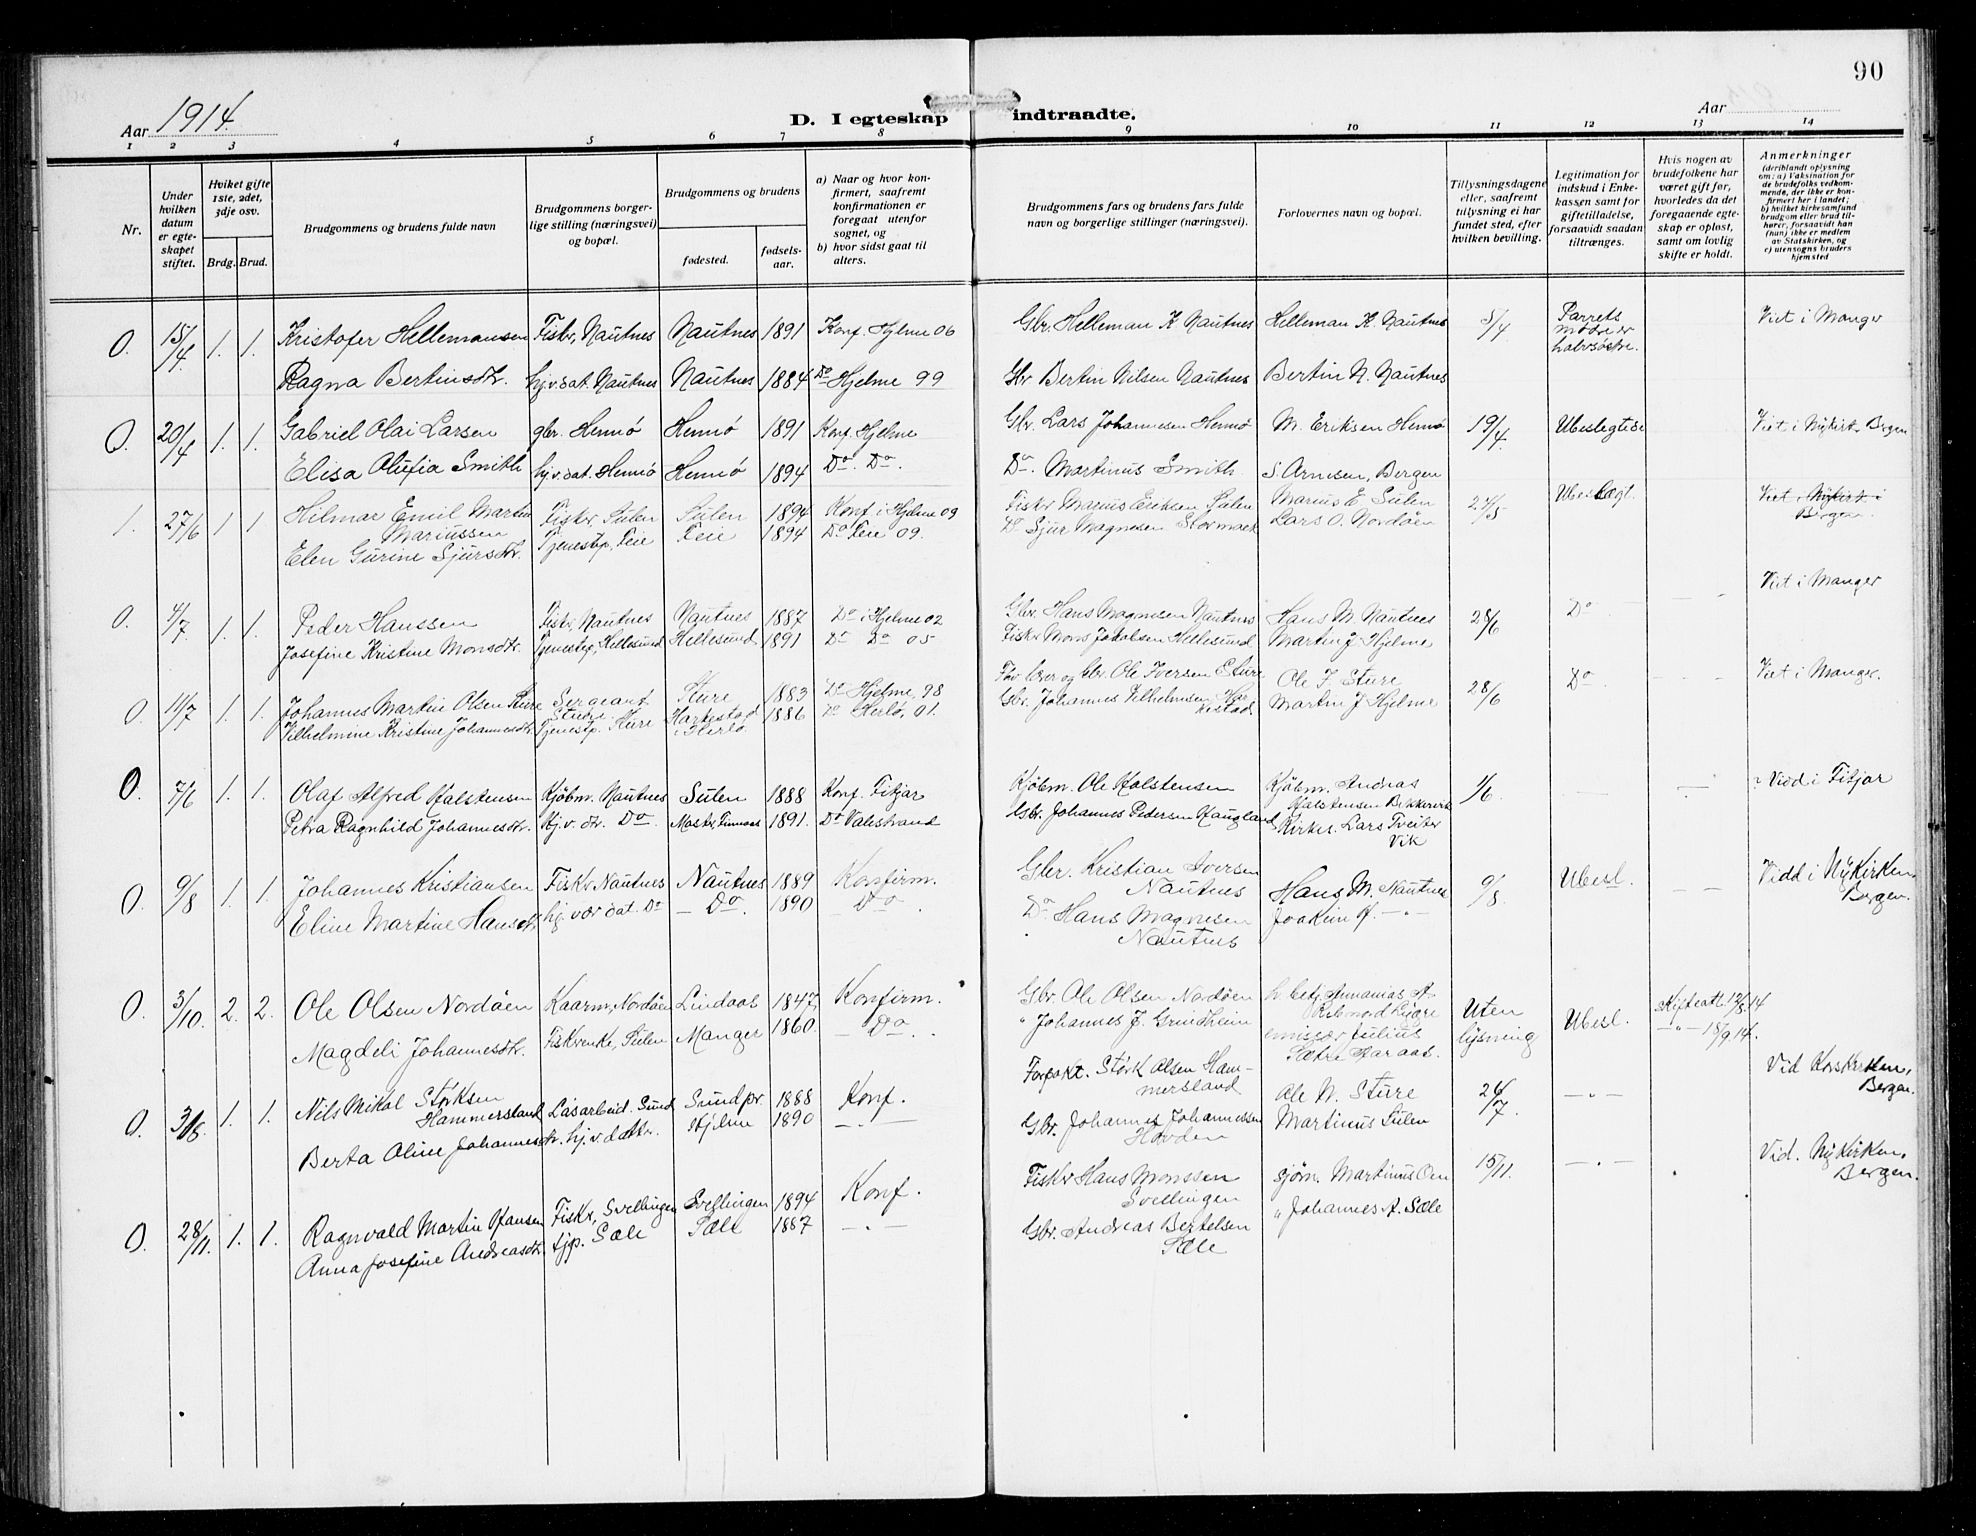 90
Aar 1914.
D. I egteskap indtraadte.
Aar
1 2 3 4 5 6 7 8 9 10 11 12 13 14
Nr.
Under hvilken datum er egteskapet stiftet.
Hviket gifte 1ste, 2det, 3dje osv.
Brdg. Brud.
Brudgommens og brudens fulde navn
Brudgommens borgerlige stilling (næringsvei) og bopæl.
Brudgommens og brudens
fødested.
fødselsaar.
a) Naar og hvor konfirmert, saafremt konfirmationen er foregaat utenfor sognet, og
b) hvor sidst gaat til alters.
Brudgommens fars og brudens fars fulde navn og borgerlige stillinger (næringsvei).
Forlovernes navn og bopæl.
Tillysningsdagene eller, saafremt tillysning ei har fundet sted, efter hvilken bevilling.
Legitimation for indskud i Enkekassen samt for giftetilladelse, forsaavidt saadan tiltrænges.
Hvis nogen av brudefolkene har været gift før, hvorledes da det foregaaende egteskap er opløst, samt om lovlig skifte er holdt.
Anmerkninger
(deriblandt oplysning om: a) Vaksination for de brudefolks vedkommende, der ikke er konfirmert her i landet; b) hvilket kirkesamfund brudgom eller brud tilhører, forsaavidt han (hun) ikke er medlem av Statskirken, og c) utensogns bruders hjemsted
0. 15/4 1. 1. Kristofer Hellemansen Fiskr, Nautnes Nautnes 1891 Konf. Hjelme 06 Gbr. Helleman K. Nautnes Helleman K. Nautnes 5/4 Parrets mødre er halvsøstre. Viet i Manger
Ragna Bertinsdtr. hj.v.dat. Nautnes Nautnes 1884 Do Hjelme 99 Gbr Bertin Nilsen Nautnes Bertin N. Nautnes
0. 20/4 1. 1. Gabriel Olai Larsen gbr. Hennø Hennø 1891 Konf. Hjelme Gbr. Lars Johannesen Hennø M. Eriksen Hennø 19/4 Ubeslegtede Viet i Nykirk. Bergen
Elisa Olufia Smith hj.v.dat. Hennø Hennø 1894 Do. Do. Do. Martinus Smith S. Arnesen, Bergen
1. 27/6 1 1 Hilmar Emil Martin Mariussen Fiskr, Sulen Sulen 1894 Konf. i Hjelme 09 Fiskr Marius Eriksen Sulen Marius E Sulen 24/5 Ubeslægt. Viet i Nykirk. i Bergen.
Elen Gurine Sjursdtr. Tjenestep., Seie Seie 1894 Do Seie 09. Do Sjur Magnesen Stormark Lars O. Nordøen
0. 4/7 1. 1. Peder Hanssen Fiskr, Nautnes Nautnes 1887 Do i Hjelme 02 Gbr. Hans Magnesen Nautnes Hans M. Nautnes 28/6 Do Viet i Manger
Josefine Kristine Monsdtr. Tjenestep, Hellesund Hellesund 1891 Do Do 05 Fiskr Mons Jakobsen Hellesund Martin J Hjelme
0. 11/7 1. 1. Johannes Martin Olsen Sture Sergeant Sture Sture 1883 Do Hjelme, 98 Forv. lærer og Gbr. Ole Iversen Sture Ole I. Sture 28/6 Do Viet i Manger.
Vilhelmine Kristine Johannesdtr. Tjenestp. Sture Harkestad i Herlø 1886 Do Herlø, 01. Gbr. Johannes Vilhelmsen Harkestad. Martin J Hjelme
0. 7/6 1. 1. Olaf Alfred Halstensen Kjøbm. Nautnes Sulen 1888 Konf. Fitjar Kjøbm. Ole Halstensen Kjøbm. Andreas Halstensen Bekkervik 1/6. Vidd i Fitjar
Petra Ragnhild Johannesdtr. Hj.v. dr. Do. Master, Finnaas 1891. Do Valestrand Gbr. Johannes Pedersen Haugland Kirkes. Lars Tveiter Vik
0. 9/8 1. 1. Johannes Kristiansen Fiskr Nautnes Nautnes 1889 Konfirm. Gbr. Kristian Iversen Nautnes Hans M. Nautnes 9/8. Ubesl. Vidd i Nykirken, Bergen.
Eline Martine Hansdtr hj. vær. dat. Do Do 1890 Do Do. Hans Magnesen Nautnes Joakim H. - " -
0. 3/10. 2. 2. Ole Olsen Nordøen Kaarm, Nordøen Lindaas 1847 Konfirm. Gbr. Ole Olsen Nordøen Uten lysning Ubesl. Skifteatt. 12/8.14
Magdeli Johannesdtr. Fiskrenke, Sulen Manger 1860. Do. " Johannes J. Grindheim emissær Julius - " - 18/9.14.
0. 3/8. 1. 1. Nils Mikal Størksen Hammersland Løsarbeid. Sund Sund pr. 1888 Konf. Forpakt. Størk Olsen Hammersland Ole N. Sture 26/7. - " - Vid Korskirken, Bergen.
Berta Oline Johannesdtr. hj.v.datr. Hjelme 1890 - " - Gbr. Johannes Johannessen Hovden Martinus Sulen
0. 28/11. 1. 1. Ragnvald Martin Hansen Fiskr, Svellingen Svellingen 1894 Konf. Fiskr Hans Monssen Svellingen sjøm. Martinus Oen 15/11. - " - Vid. Nykirken, Bergen.
Anna Josefine Andreasdtr. tjp. Sæle Sæle 1887 - " - Gbr. Andreas Bertelsen Sæle " Johannes A. Sæle